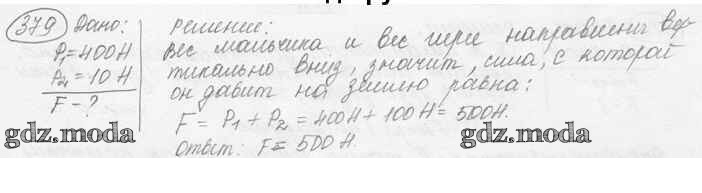 379 Дано:
P₁=400Н
P₂=10 Н
F-?
Решение:
Вес мальчика и вес гири направлены вер-
тикально вниз, значит, сила, с которой
он давит на землю равна:
F = P₁ + P₂ = 400Н + 100Н = 500Н.
Ответ: F = 500 Н.
gdz.moda
gdz.moda